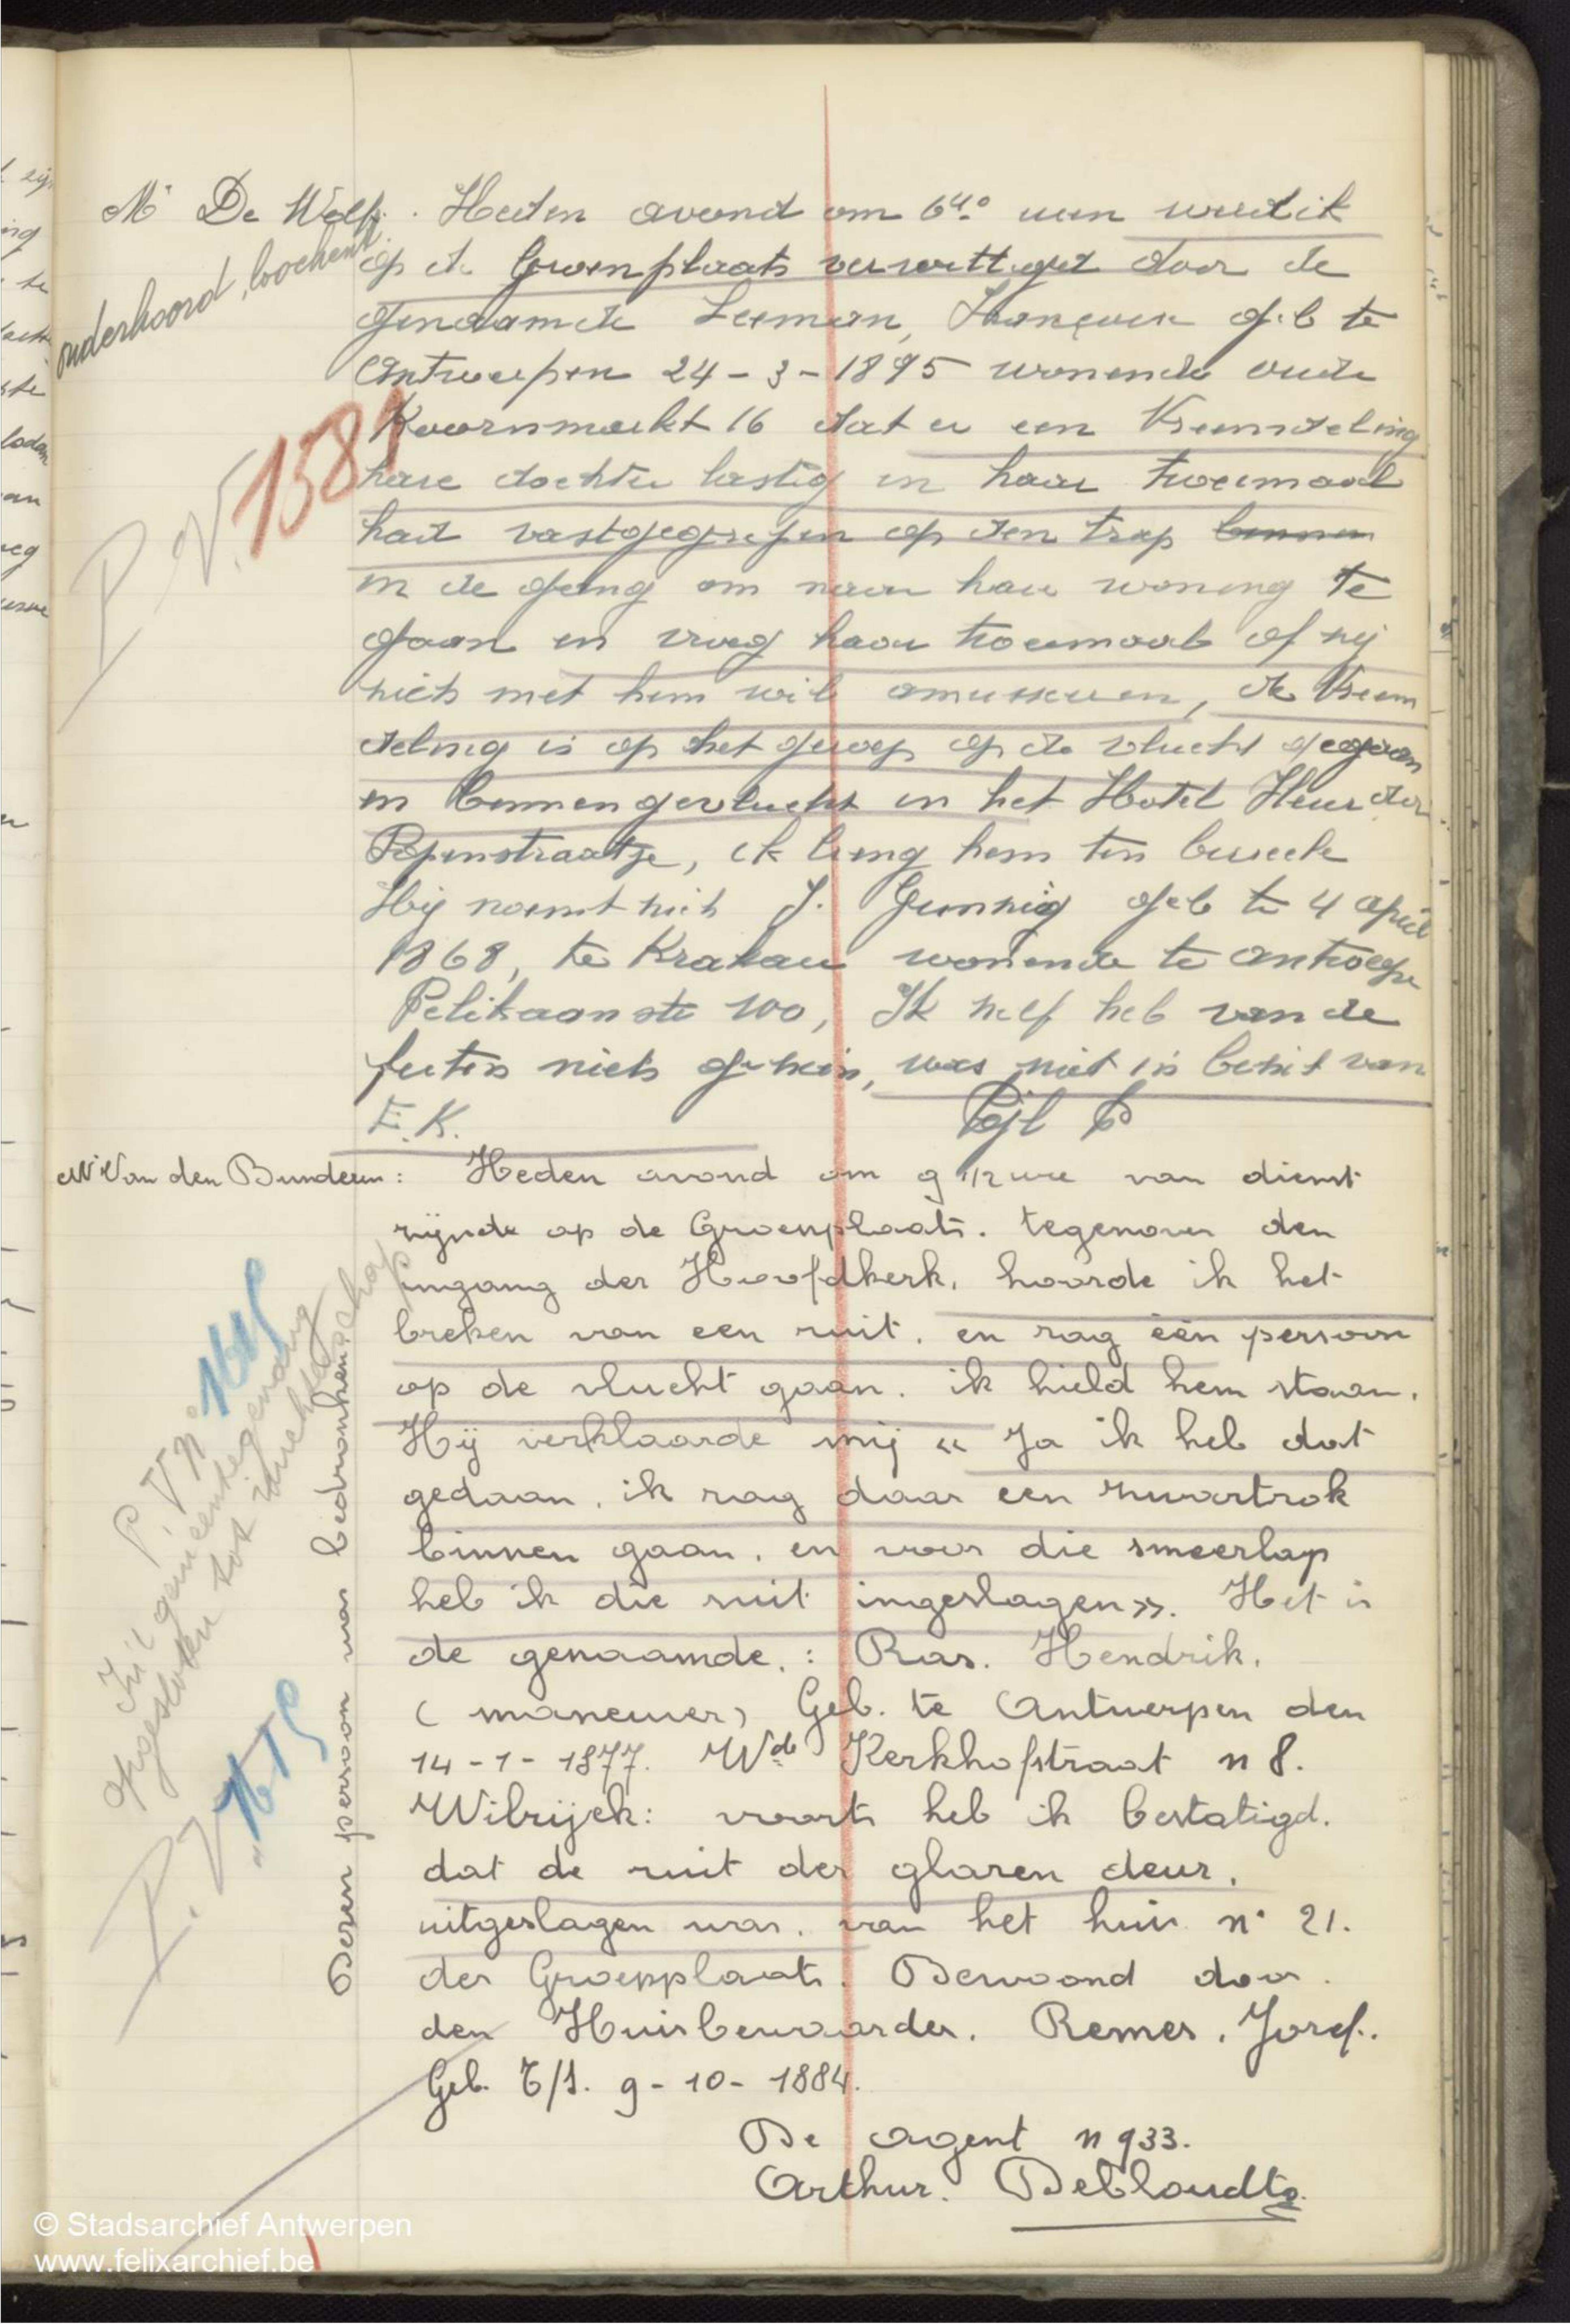 Mr De Wolf. Heden avond om 6 40 uur werd ik
onderhoord, boekent
op de Groenplaats verwittigd door de
genaamde Leeman, Françoise geb te
Antwerpen 24-3-1895 wonende oude
Koornmarkt 16 dat er een Vreemdeling
P.V. 1581
hare dochter lastig en haar tweemaal
had vastgegrepen op den trap binnen
in de gang om naar haar woning te
gaan en vroeg haar tweemaal of zij
zich met hem wil amuseeren, de Vreem
deling is op het geroep op de vlucht gegaan
en binnengevlucht in het Hotel Heur der
Papenstraatje, ik breng hem ten bureele
Hij noemt zich J. Gunzig geb te 4 april
1868, te Krakau wonende te Antwerpe
Pelikaanstr 100, Ik zelf heb van de
feiten niets gezien, was niet in bezit van
E.K.
Mr Van den Bunderen: Heden avond om 9 1/2 ure van dienst
zijnde op de Groenplaats. tegenover den
ingang der Hoofdkerk, hoorde ik het
breken van een ruit, en zag één persoon
op de vlucht gaan. ik hield hem staan.
Hij verklaarde mij « Ja ik heb dat
gedaan, ik zag daar een zwartrok
binnen gaan, en voor die smeerlap
heb ik die ruit ingeslagen». Het is
de genaamde,: Ras. Hendrik.
(maneuver) Geb. te Antwerpen den
14-1-1877. Wde Kerkhofstraat n 8.
Wilrijck: voorts heb ik bestatigd.
dat de ruit der glazen deur,
uitgeslagen was, van het huis n° 21.
der Groenplaats. Bewoond door.
den Huisbewaarder. Remes, Jozef.
Geb. T/S. 9-10-1884.
De agent n 933.
Arthur. Deblaudts
P.V. n° 1615
In 't gemeentegendarmg
opgesloten tot
P.V. 1615
Dezen persoon was bedronken
© Stadsarchief Antwerpen
www.felixarchief.be